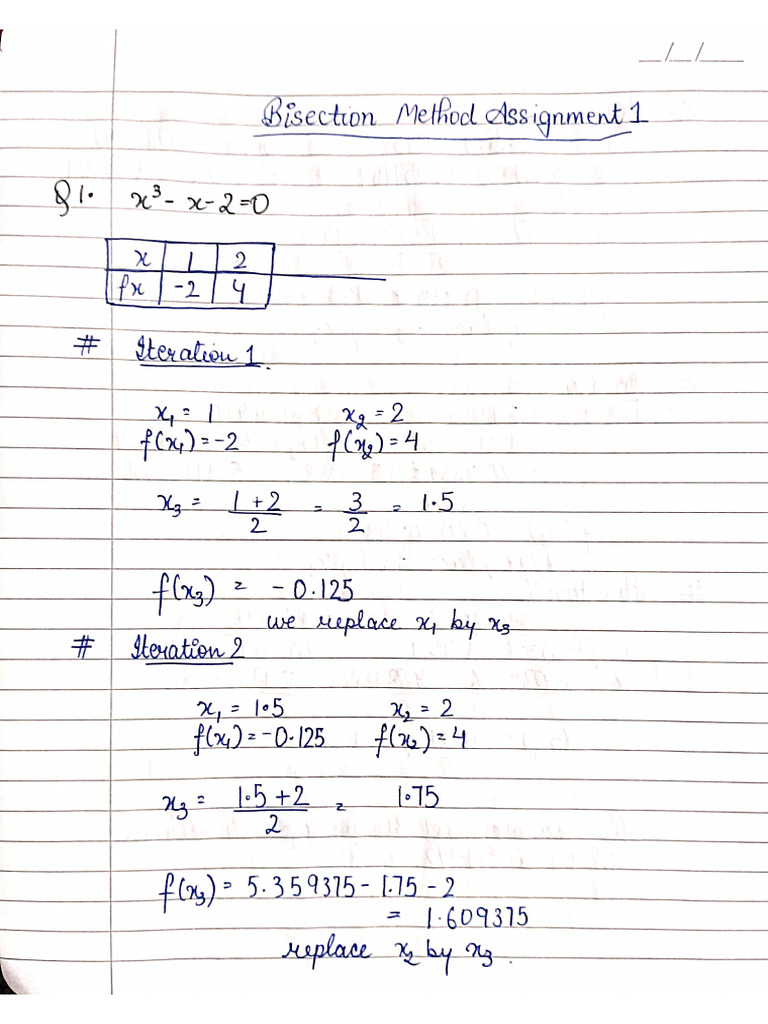 __/__/____
Bisection Method Assignment 1
Q 1. x³ - x - 2 = 0
x 1 2
fx -2 4
# Iteration 1.
x₁ = 1 x₂ = 2
f(x₁) = -2 f(x₂) = 4
x₃ = (1 + 2)/2 = 3/2 = 1.5
f(x₃) = -0.125
we replace x₁ by x₃
# Iteration 2
x₁ = 1.5 x₂ = 2
f(x₁) = -0.125 f(x₂) = 4
x₃ = (1.5 + 2)/2 = 1.75
f(x₃) = 5.359375 - 1.75 - 2
= 1.609375
replace x₂ by x₃.